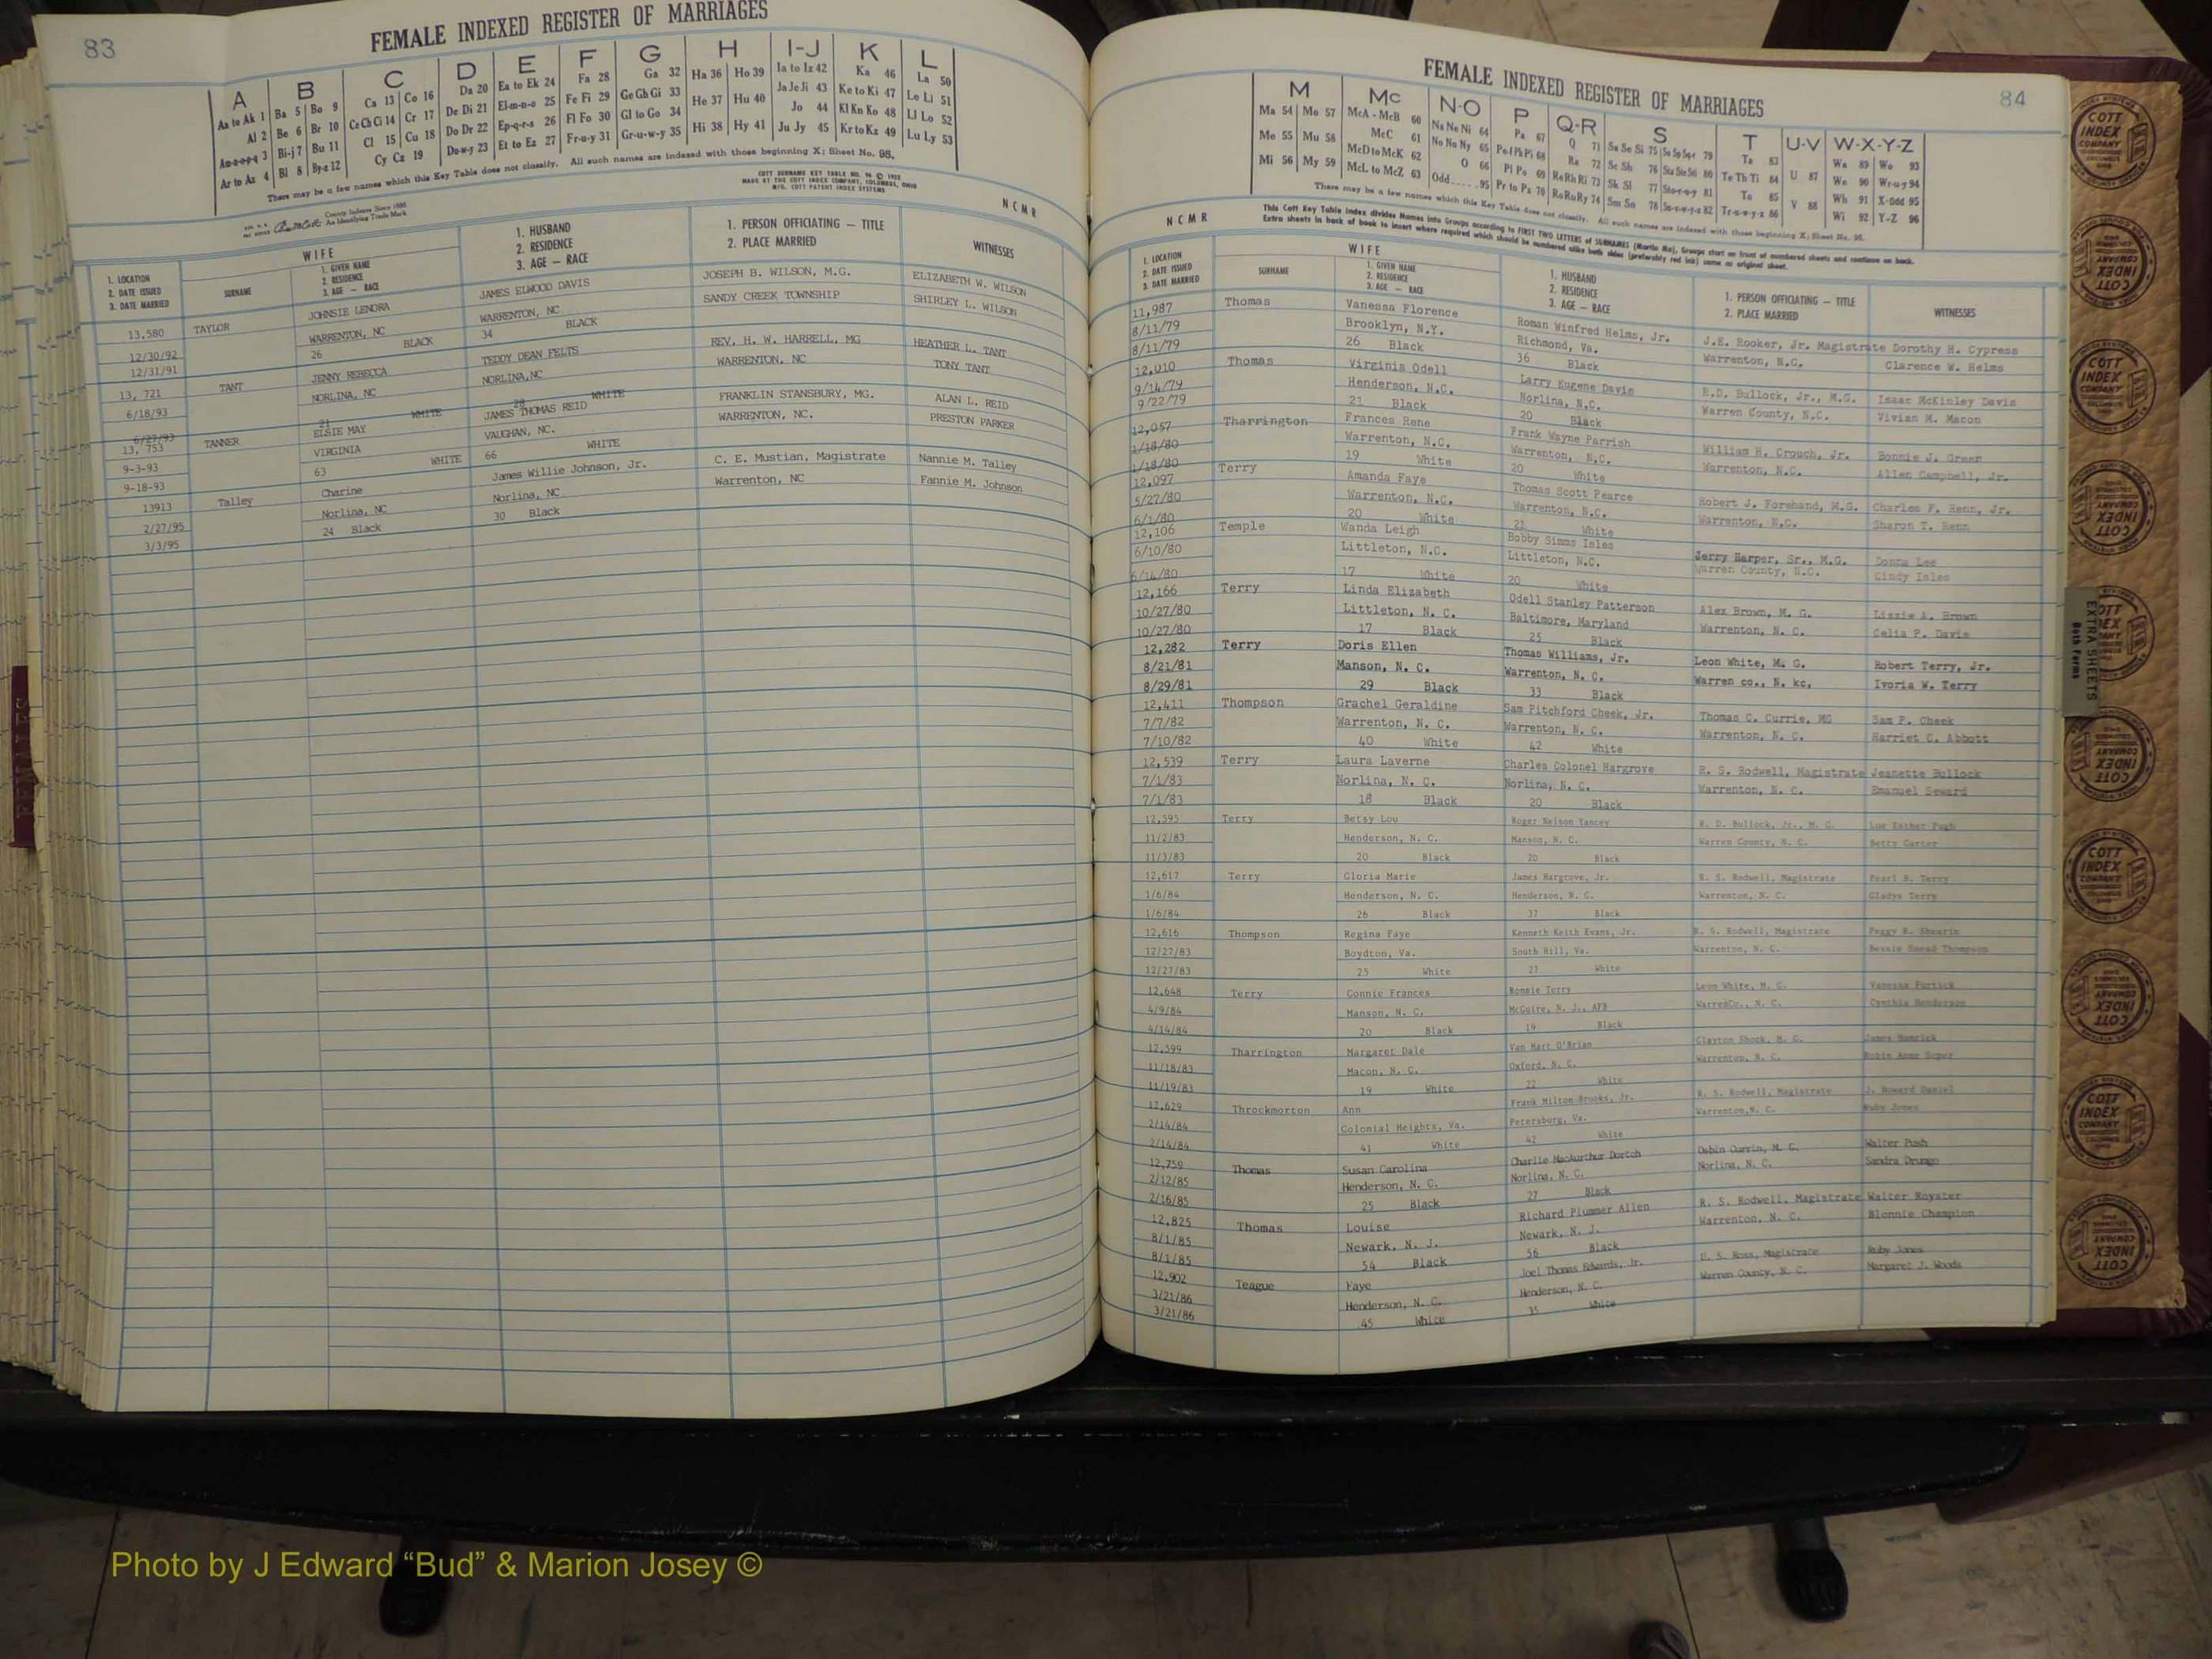 83
FEMALE INDEXED REGISTER OF MARRIAGES
A B C D E F G H I-J K L
Aa to Ak 1 Ba 5 Bo 9 Ca 13 Co 16 Da 20 Ea to Ek 24 Fa 28 Ga 32 Ha 36 Ho 39 Ia to Iz 42 Ka 46 La 50
Al 2 Be 6 Br 10 Ce Ch Ci 14 Cr 17 De Di 21 El-m-n-o 25 Fe Fi 29 Ge Gh Gi 33 He 37 Hu 40 Ja Je Ji 43 Ke to Ki 47 Le Li 51
Am-n-o-p-q 3 Bi-j 7 Bu 11 Cl 15 Cu 18 Do Dr 22 Ep-q-r-s 26 Fl Fo 30 Gl to Go 34 Hi 38 Hy 41 Jo 44 Kl Kn Ko 48 Ll Lo 52
Ar to Az 4 Bl 8 By-z 12 Cy Cz 19 Du-w-y 23 Et to Ez 27 Fr-u-y 31 Gr-u-w-y 35 Ju Jy 45 Kr to Kz 49 Lu Ly 53
There may be a few names which this Key Table does not classify. All such names are indexed with those beginning X; Sheet No. 95.
County Indexes Since 1888
An Identifying Trade Mark
COTT SURNAME KEY TABLE NO. 96 © 1952
MADE BY THE COTT INDEX COMPANY, COLUMBUS, OHIO
MFG. COTT PATENT INDEX SYSTEMS
NCMR
1. LOCATION
2. DATE ISSUED
3. DATE MARRIED
WIFE
SURNAME
1. GIVEN NAME
2. RESIDENCE
3. AGE — RACE
1. HUSBAND
2. RESIDENCE
3. AGE — RACE
1. PERSON OFFICIATING — TITLE
2. PLACE MARRIED
WITNESSES
13,580 TAYLOR JOHNSIE LENORA JAMES ELWOOD DAVIS JOSEPH B. WILSON, M.G. ELIZABETH W. WILSON
12/30/92 WARRENTON, NC WARRENTON, NC SANDY CREEK TOWNSHIP SHIRLEY L. WILSON
12/31/91 26 BLACK 34 BLACK
13, 721 TANT JENNY REBECCA TEDDY DEAN FELTS REV. H. W. HARRELL, MG HEATHER L. TANT
6/18/93 NORLINA, NC NORLINA,NC WARRENTON, NC TONY TANT
6/27/93 21 WHITE 28 WHITE
13, 753 TANNER ELSIE MAY JAMES THOMAS REID FRANKLIN STANSBURY, MG. ALAN L. REID
9-3-93 VIRGINIA VAUGHAN, NC. WARRENTON, NC. PRESTON PARKER
9-18-93 63 WHITE 66 WHITE
13913 Talley Charine James Willie Johnson, Jr. C. E. Mustian, Magistrate Nannie M. Talley
2/27/95 Norlina, NC Norlina, NC Warrenton, NC Fannie M. Johnson
3/3/95 24 Black 30 Black
FEMALE INDEXED REGISTER OF MARRIAGES
84
M Mc N-O P Q-R S T U-V W-X-Y-Z
Ma 54 Mo 57 McA - McB 60 Na Ne Ni 64 Pa 67 Q 71 Sa Se Si 75 Sn So Sp Sq-r 79 Ta 83 Wa 89 Wo 93
Me 55 Mu 58 McC 61 No Nu Ny 65 Pe-f Ph Pi 68 Ra 72 Sc Sh 76 Sta Ste Sti 80 Te Th Ti 84 U 87 We 90 Wr-u-y 94
Mi 56 My 59 McD to McK 62 O 66 Pl Po 69 Re Rh Ri 73 Sk Sl 77 Sto-r-u-y 81 To 85 V 88 Wh 91 X-Odd 95
McL to McZ 63 Odd.....95 Pr to Pz 70 Ro Ru Ry 74 Sm Sn 78 Su-v-w-y-z 82 Tr-u-w-y-z 86 Wi 92 Y-Z 96
There may be a few names which this Key Table does not classify. All such names are indexed with those beginning X; Sheet No. 95.
NCMR
This Cott Key Table Index divides Names into Groups according to FIRST TWO LETTERS of SURNAMES (Martin Ma), Groups start on front of numbered sheets and continue on back.
Extra sheets in back of book to insert where required which should be numbered alike both sides (preferably red ink) same as original sheet.
1. LOCATION
2. DATE ISSUED
3. DATE MARRIED
WIFE
SURNAME
1. GIVEN NAME
2. RESIDENCE
3. AGE — RACE
1. HUSBAND
2. RESIDENCE
3. AGE — RACE
1. PERSON OFFICIATING — TITLE
2. PLACE MARRIED
WITNESSES
11,987 Thomas Vanessa Florence Roman Winfred Helms, Jr. J.E. Rooker, Jr. Magistrate Dorothy H. Cypress
8/11/79 Brooklyn, N.Y. Richmond, Va. Warrenton, N.C. Clarence W. Helms
8/11/79 26 Black 36 Black
12,010 Thomas Virginia Odell Larry Eugene Davis R.D. Bullock, Jr., M.G. Isaac McKinley Davis
9/14/79 Henderson, N.C. Norlina, N.C. Warren County, N.C. Vivian M. Macon
9/22/79 21 Black 20 Black
12,057 Tharrington Frances Rene Frank Wayne Parrish William H. Crouch, Jr. Bonnie J. Greer
1/18/80 Warrenton, N.C. Warrenton, N.C. Warrenton, N.C. Allen Campbell, Jr.
1/18/80 19 White 20 White
12,097 Terry Amanda Faye Thomas Scott Pearce Robert J. Forehand, M.G. Charles F. Renn, Jr.
5/27/80 Warrenton, N.C. Warrenton, N.C. Warrenton, N.C. Sharon T. Renn
6/1/80 20 White 21 White
12,106 Temple Wanda Leigh Bobby Simms Isles Jerry Harper, Sr., M.G. Donna Lee
6/10/80 Littleton, N.C. Littleton, N.C. Warren County, N.C. Cindy Isles
6/14/80 17 White 20 White
12,166 Terry Linda Elizabeth Odell Stanley Patterson Alex Brown, M. G. Lizzie A. Brown
10/27/80 Littleton, N. C. Baltimore, Maryland Warrenton, N. C. Celia P. Davis
10/27/80 17 Black 25 Black
12,282 Terry Doris Ellen Thomas Williams, Jr. Leon White, M. G. Robert Terry, Jr.
8/21/81 Manson, N. C. Warrenton, N. C. Warren co., N. kc. Ivoria W. Terry
8/29/81 29 Black 33 Black
12,411 Thompson Grachel Geraldine Sam Pitchford Cheek, Jr. Thomas C. Currie, MG Sam P. Cheek
7/7/82 Warrenton, N. C. Warrenton, N. C. Warrenton, N. C. Harriet C. Abbott
7/10/82 40 White 42 White
12,539 Terry Laura Laverne Charles Colonel Hargrove R. S. Rodwell, Magistrate Jeanette Bullock
7/1/83 Norlina, N. C. Norlina, N. C. Warrenton, N. C. Emanuel Seward
7/1/83 18 Black 20 Black
12,595 Terry Betsy Lou Roger Nelson Yancey R. D. Bullock, Jr., M. G. Lue Esther Pugh
11/2/83 Henderson, N. C. Manson, N. C. Warren County, N. C. Betty Carter
11/3/83 20 Black 20 Black
12,617 Terry Gloria Marie James Hargrove, Jr. R. S. Rodwell, Magistrate Pearl B. Terry
1/6/84 Henderson, N. C. Henderson, N. C. Warrenton, N. C. Gladys Terry
1/6/84 26 Black 37 Black
12,616 Thompson Regina Faye Kenneth Keith Evans, Jr. R. S. Rodwell, Magistrate Peggy R. Shearin
12/27/83 Boydton, Va. South Hill, Va. Warrenton, N. C. Bessie Snead Thompson
12/27/83 25 White 27 White
12,648 Terry Connie Frances Ronnie Terry Leon White, M. G. Vanessa
4/9/84 Manson, N. C. McGuire, N. J., AFB WarrenCo., N. C. Cynthia Henderson
4/14/84 20 Black 19 Black
12,599 Tharrington Margaret Dale Van Hart O'Brian Clayton Shook, M. G. James Hamrick
11/18/83 Macon, N. C. Oxford, N. C. Warrenton, N. C. Robin Anne Soper
11/19/83 19 White 22 White
12,629 Throckmorton Ann Frank Milton Brooks, Jr. R. S. Rodwell, Magistrate J. Howard Daniel
2/14/84 Colonial Heights, Va. Petersburg, Va. Warrenton,N. C. Ruby Jones
2/14/84 41 White 42 White
12,759 Thomas Susan Carolina Charlie MacAurthur Dortch Osbin Currin, M. G. Walter Push
2/12/85 Henderson, N. C. Norlina, N. C. Norlina, N. C. Sandra Drungo
2/16/85 25 Black 27 Black
12,825 Thomas Louise Richard Plummer Allen R. S. Rodwell, Magistrate Walter Royster
8/1/85 Newark, N. J. Newark, N. J. Warrenton, N. C. Blonnie Champion
8/1/85 54 Black 56 Black
12,902 Teague Faye Joel Thomas Edwards, Jr. U. S. Ross, Magistrate Ruby Jones
3/21/86 Henderson, N. C. Henderson, N. C. Warren County, N. C. Margaret J. Woods
3/21/86 45 White 35 White
EXTRA SHEETS
Both Forms
COTT INDEX COMPANY
Photo by J Edward “Bud” & Marion Josey ©